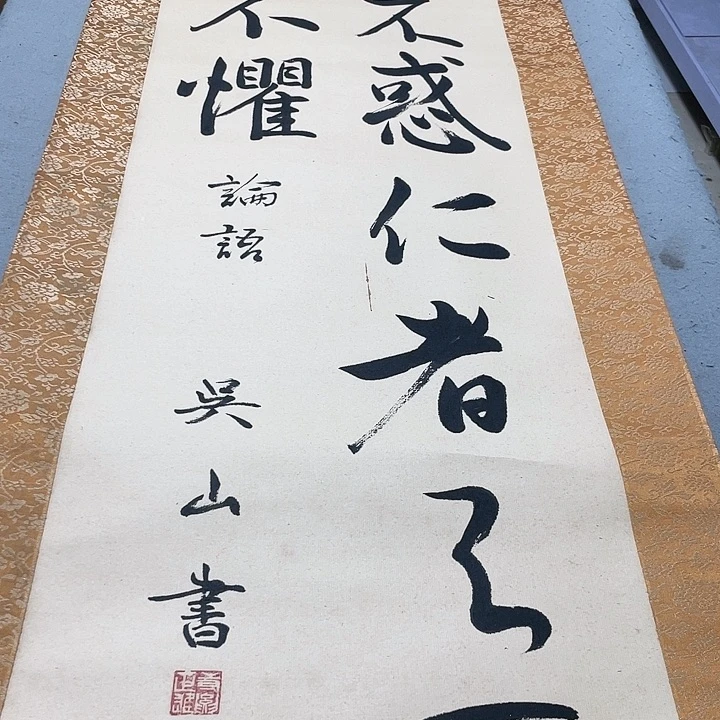 不惑仁者不
不懼
論語
吳山書